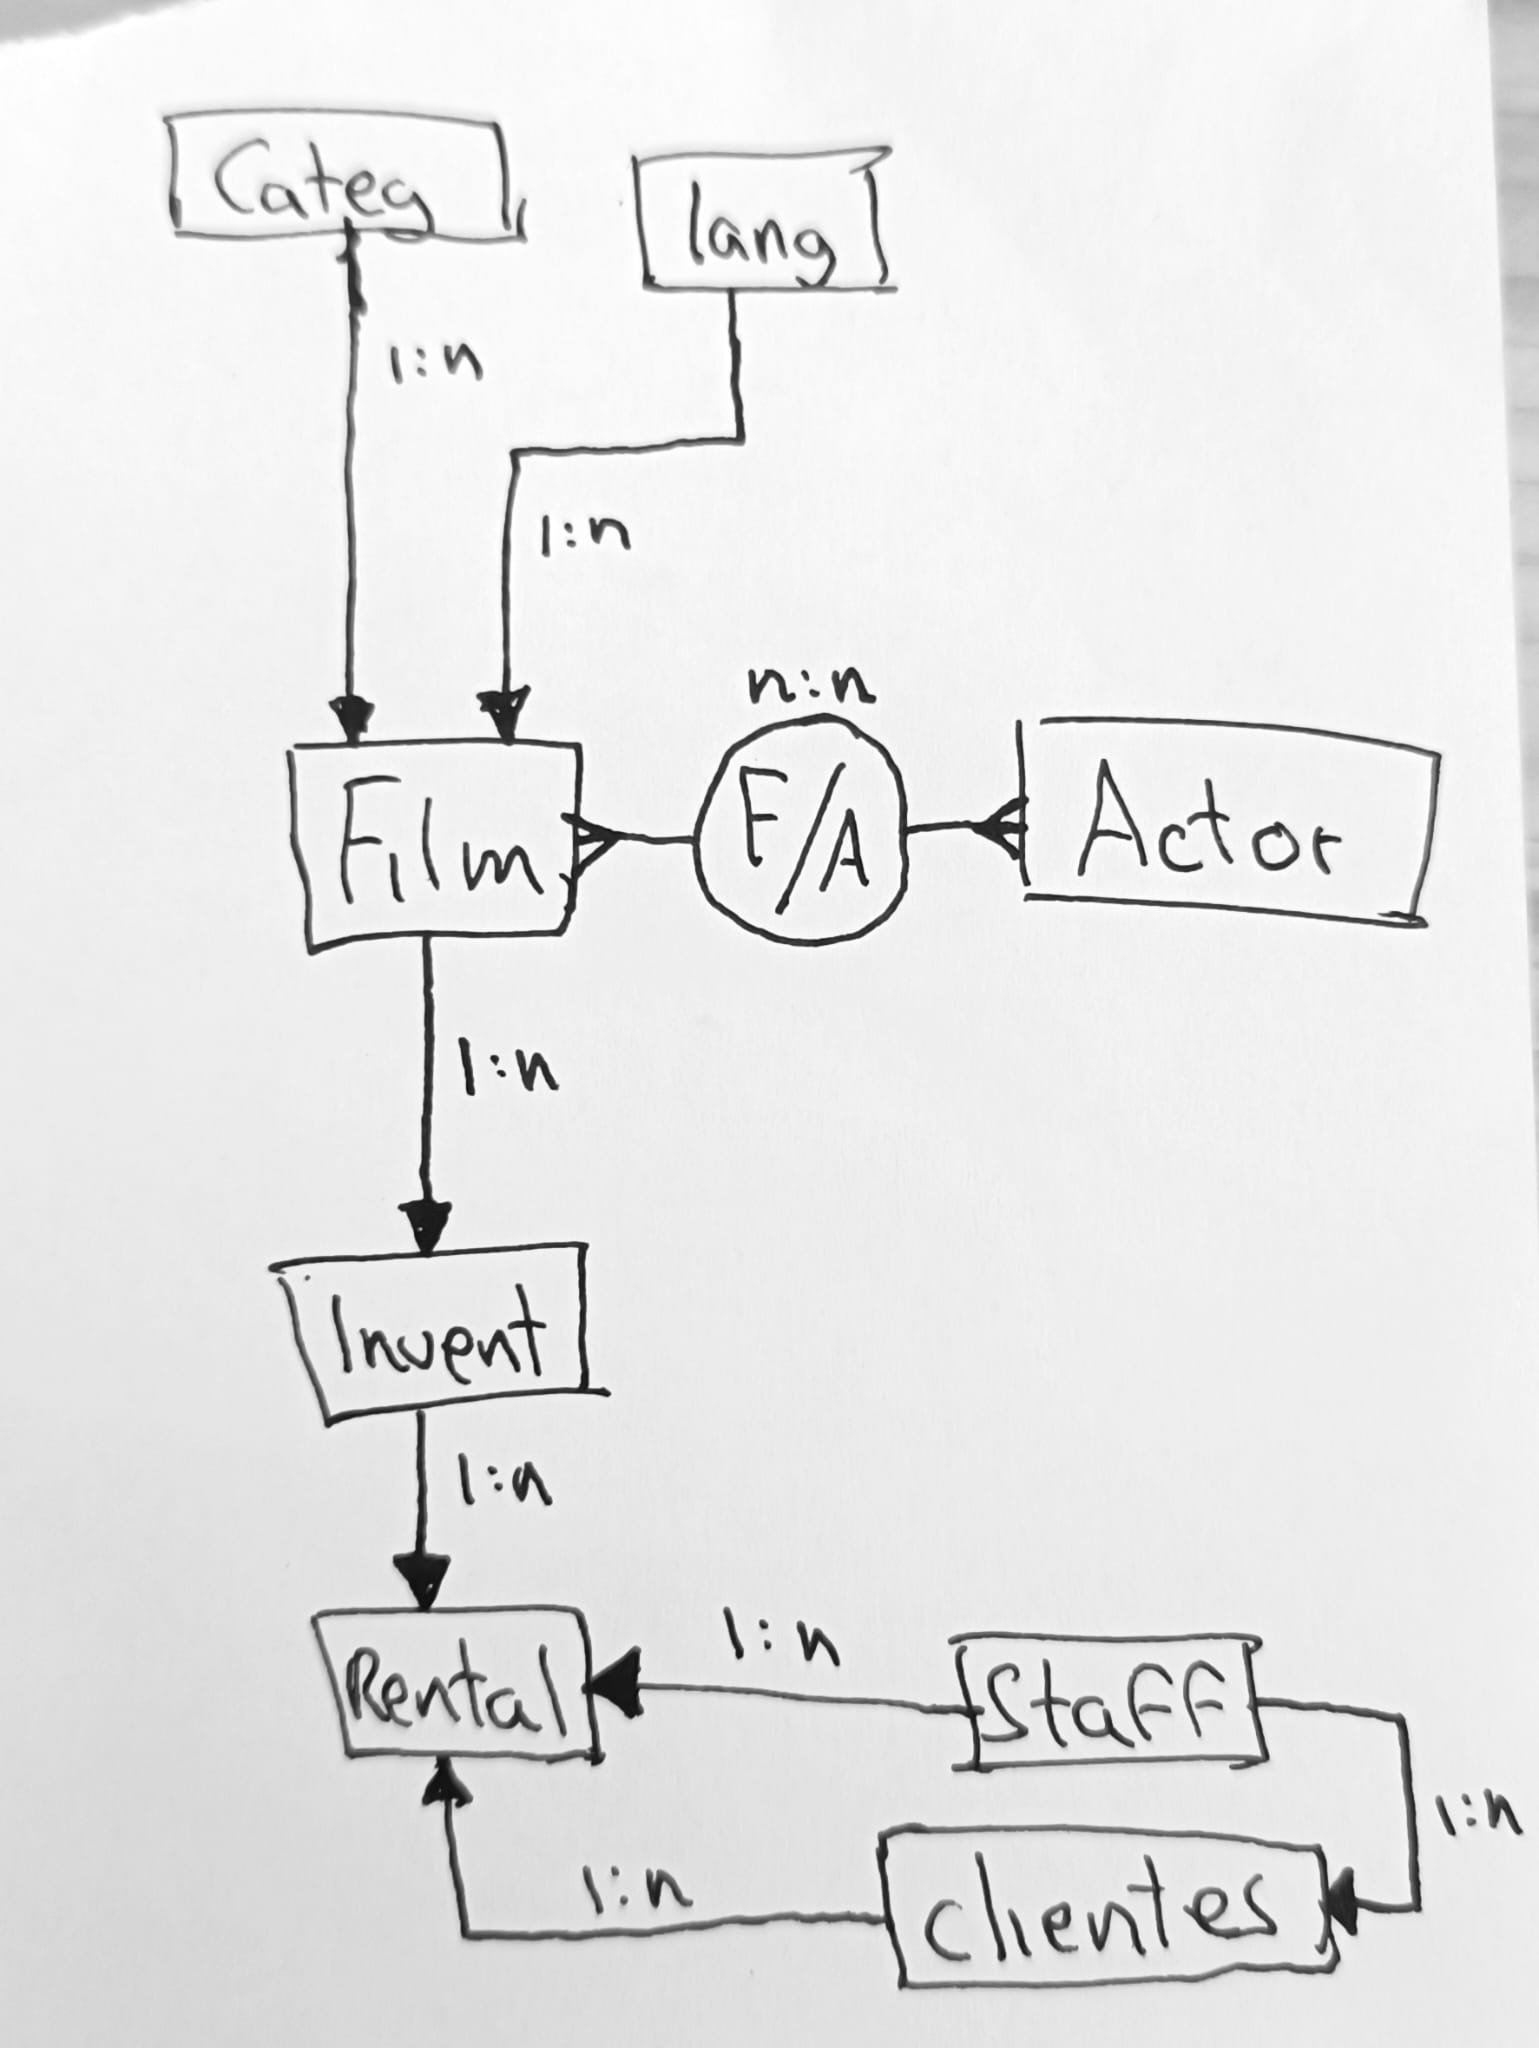 Categ
lang
1:n
1:n
n:n
Film
F/A
Actor
1:n
Invent
1:n
Rental
1:n
Staff
1:n
1:n
clientes